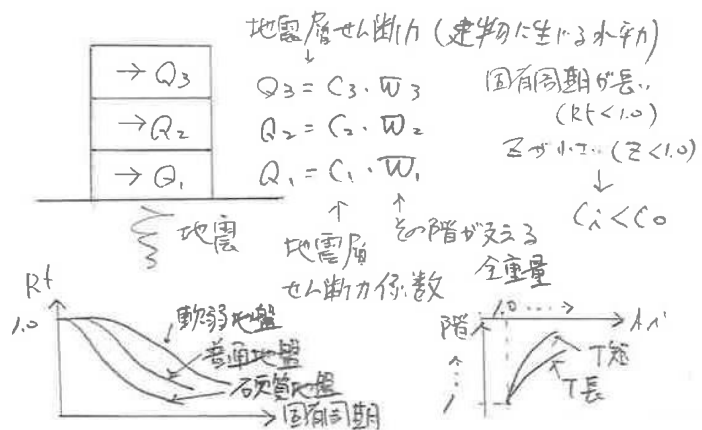 地震層せん断力(建物に生じる水平力)
→Q3
→Q2
→Q1
地震
Q3=C3・W3
Q2=C2・W2
Q1=C1・W1
地震層
せん断力係数
その階が支える
全重量
固有周期が長い
(Rt<1.0)
Zが小さい(Z<1.0)
↓
Ci<C0
Rt
1.0
軟弱地盤
普通地盤
硬質地盤
固有周期
階
1.0 ‥‥→
Ai
T短
T長
1